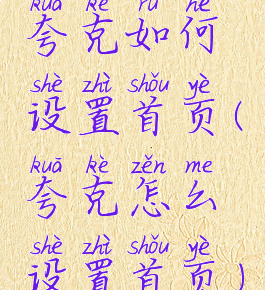 kuā kè rú hé
夸克如何
shè zhì shǒu yè
设置首页(
kuā kè zěn me
夸克怎么
shè zhì shǒu yè
设置首页)